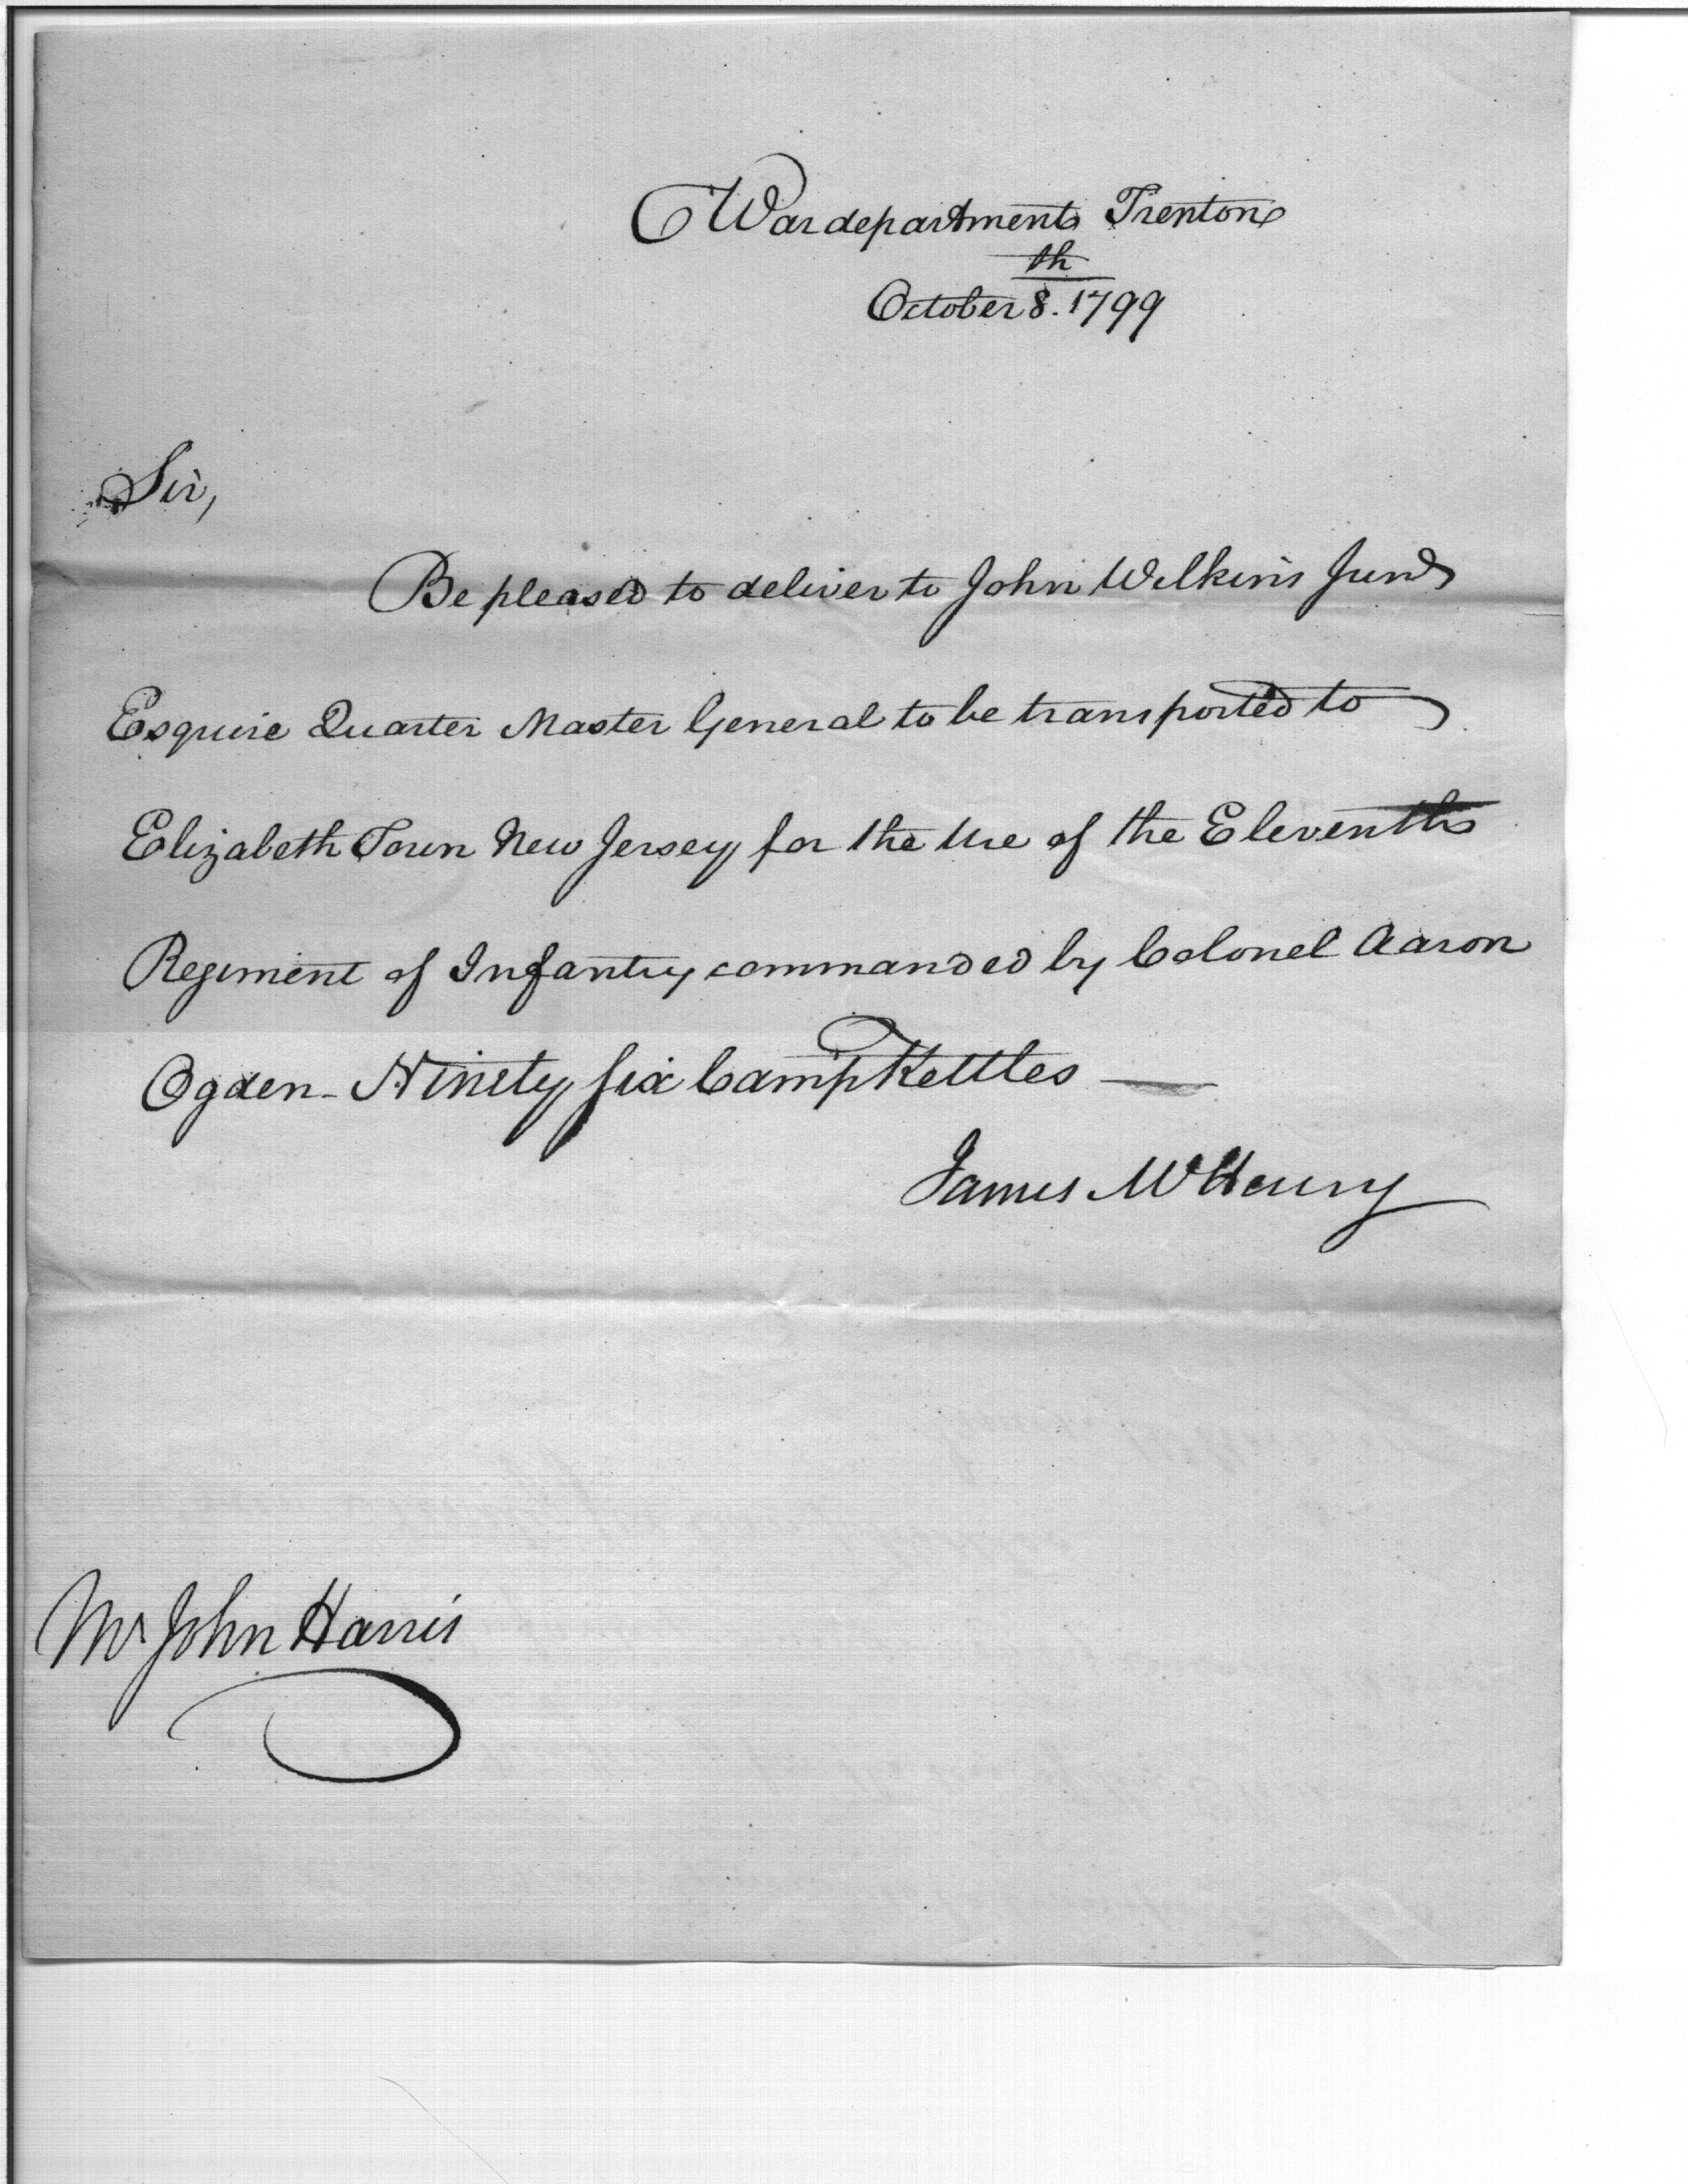 War department Trenton
October 8th. 1799
Sir,
Be pleased to deliver to John Wilkins Junr
Esquire Quarter Master General to be transported to
Elizabeth Town New Jersey for the Use of the Eleventh
Regiment of Infantry commanded by Colonel Aaron
Ogden - Ninety six Camp Kettles —
James McHenry
Mr John Harris